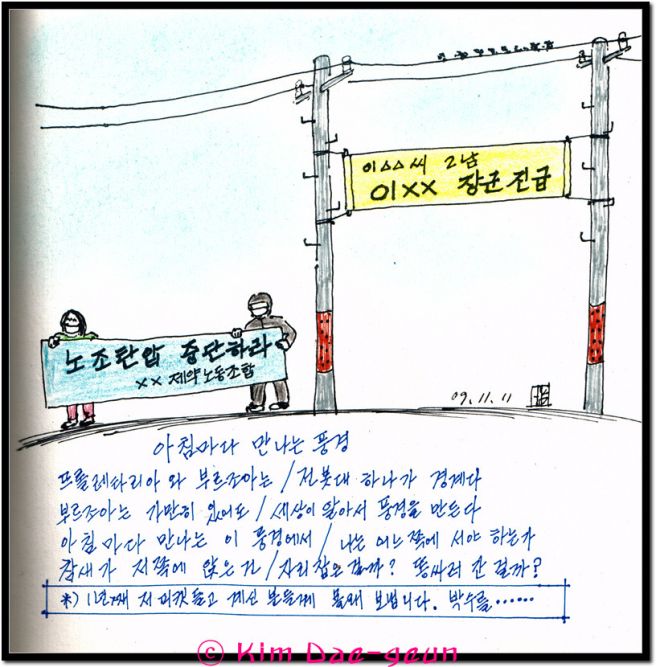 이△△씨 2남
이×× 장군 진급
노조탄압 중단하라
×× 제약노동조합
09.11.11
아침마다 만나는 풍경
프롤레타리아와 부르조아는 / 전봇대 하나가 경계다
부르조아는 가만히 있어도 / 세상이 알아서 풍경을 만든다
아침마다 만나는 이 풍경에서 / 나는 어느쪽에 서야 하는가
참새가 저쪽에 앉은 건 / 자리잡은 걸까? 똥싸러 간 걸까?
*) 1년째 저 피켓들고 계신 분들께 몰래 보냅니다. 박수를......
© Kim Dae-geun